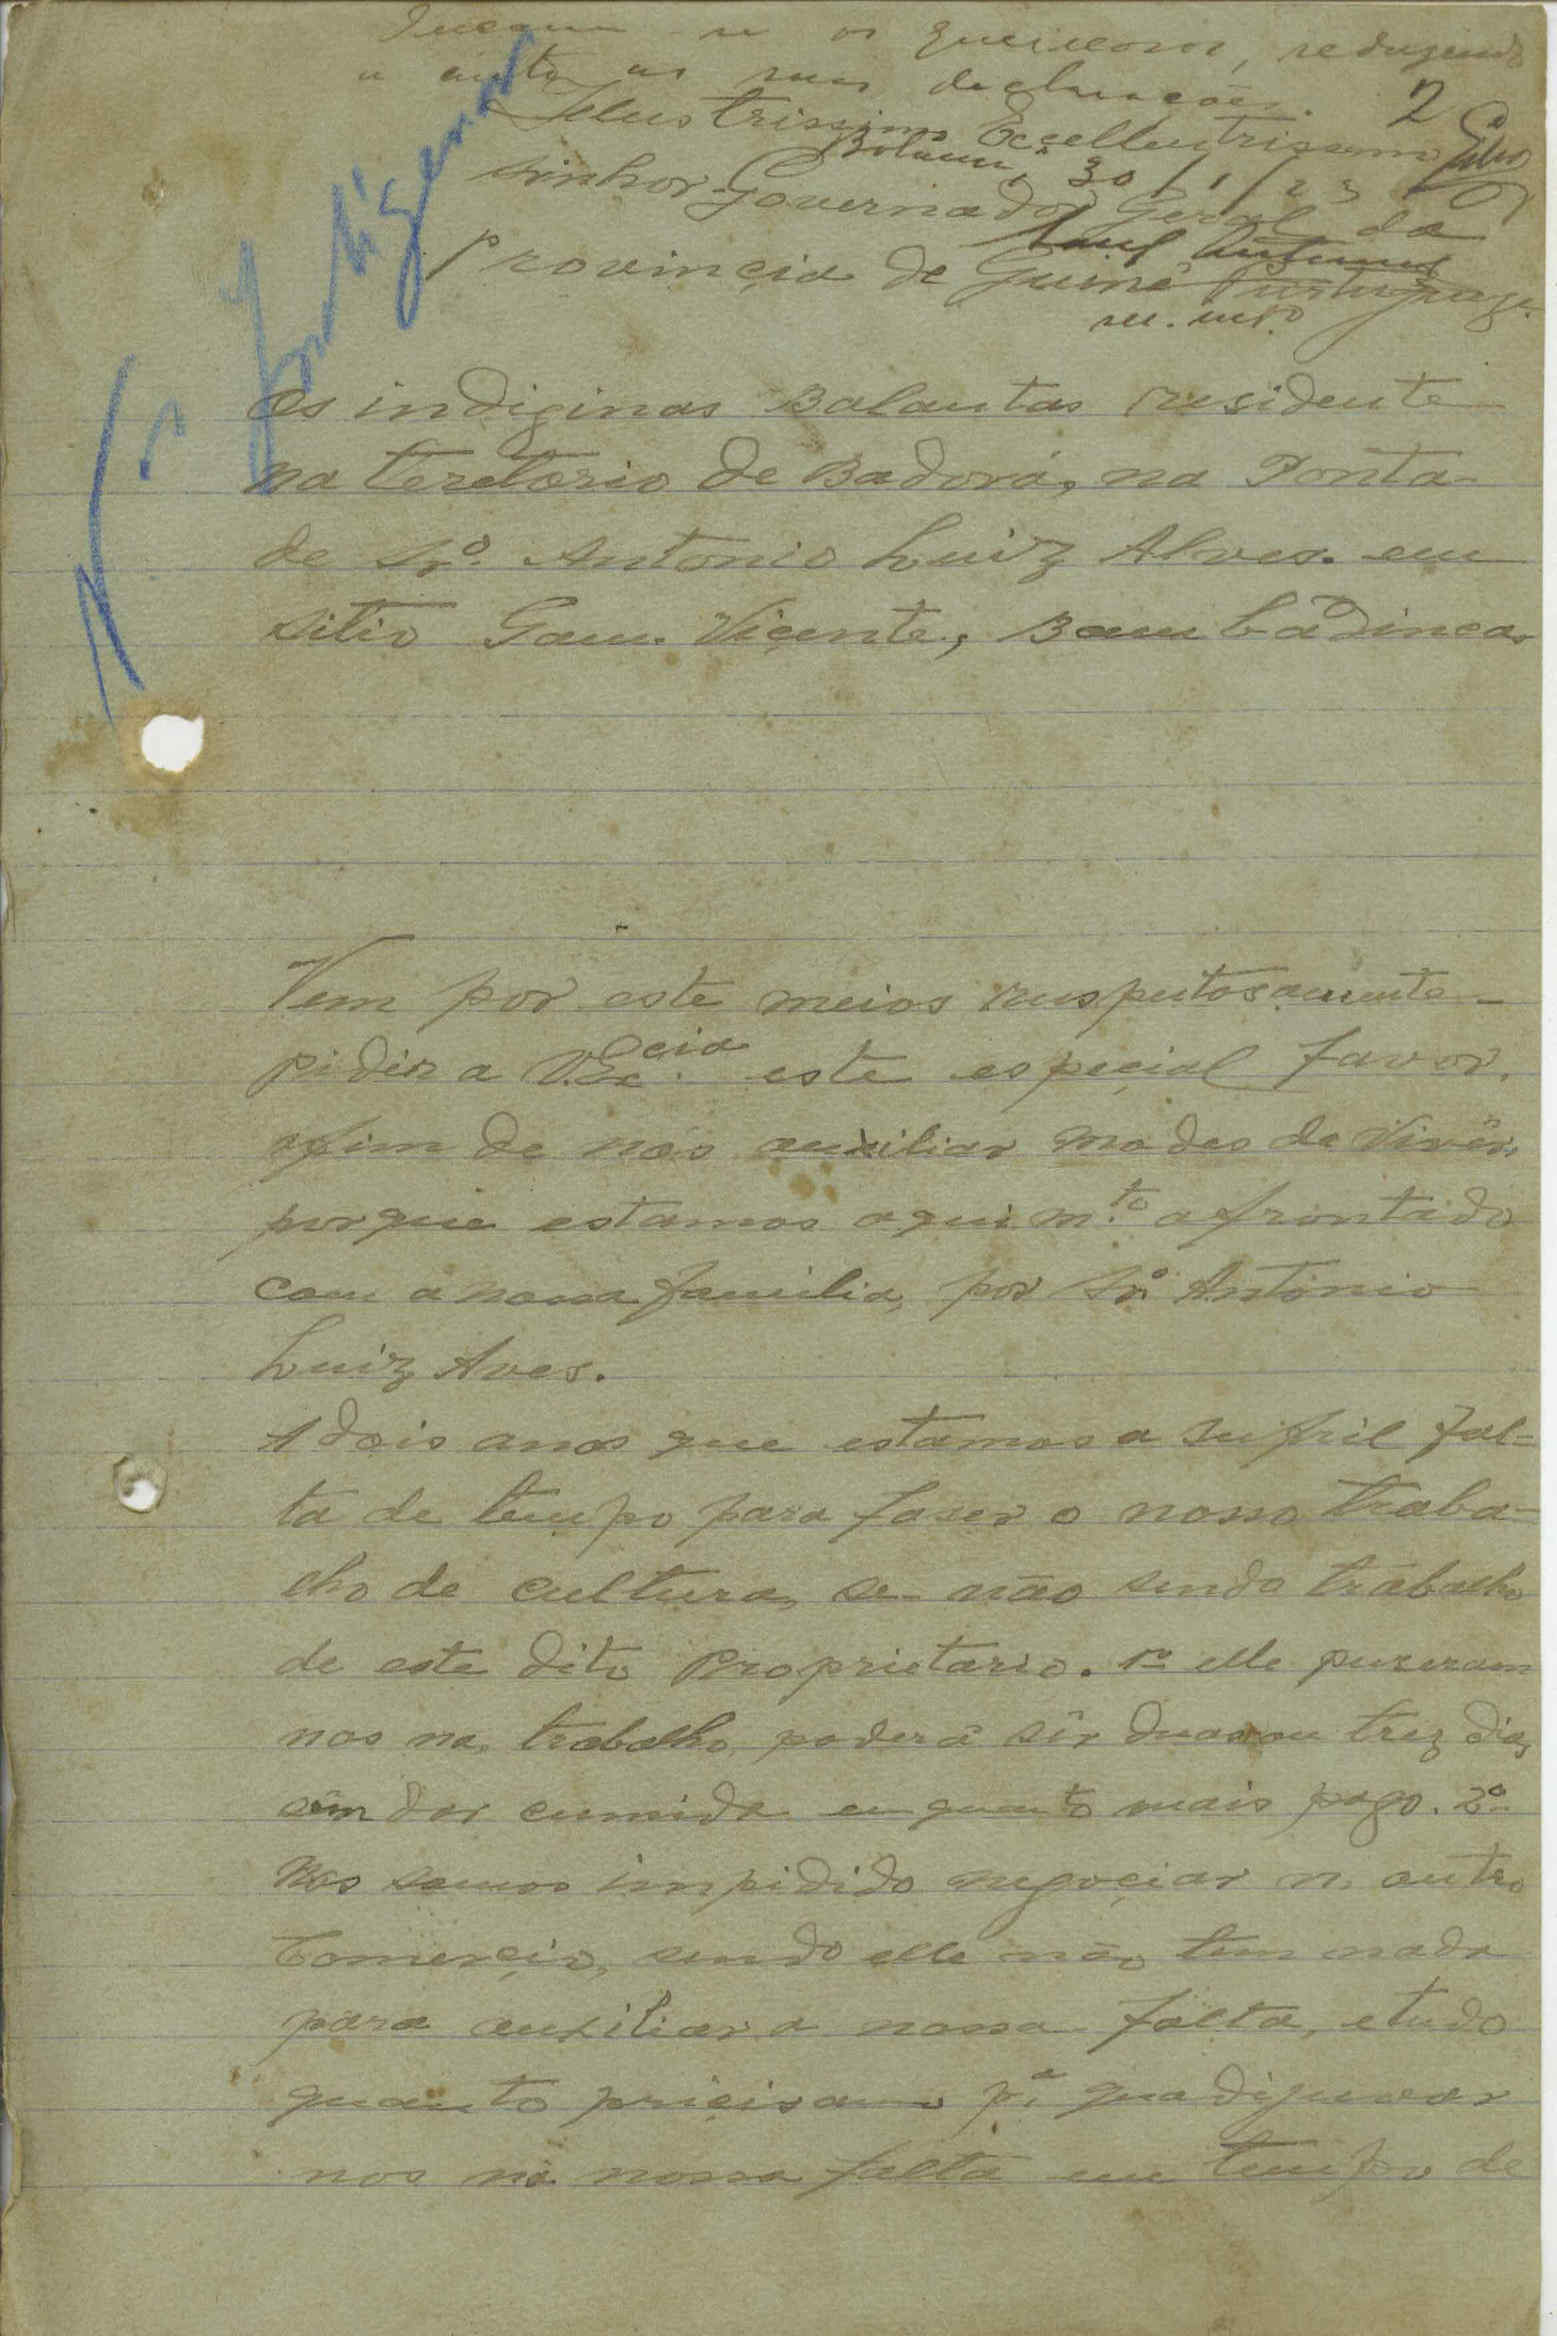 os queixosos, reduzindo
a auto as suas declarações.
2
Illustrissimo Eccellentrissimo
Bolama, 30/1/23
Sinhor Governador Geral da
Provincia de Guiné Portugueza.
Indigenas
Os indiginas Balantas residente
na teretorio de Badorá, na Ponta
de Snr.º Antonio Luiz Alves. em
sitio Gam. Viçente, Bambadinca,
Vem por este meios respeitosamente
pidir a V.Exc.cia este espeçial favor,
afim de nos auxiliar modes de Vivêr,
porque estamos aqui m.to afrontado
com a nossa familia, por Snr.º Antonio
Luiz Aves.
A dois anos que estamos a sufril fal-
ta de tempo para faser o nosso traba-
lho de cultura, se não sendo trabalho
de este dito Proprietario. 1º elle puzeram
nos na trabalho, poderá sêr duas ou trez dias,
sêm dar cumida enquanto mais pago. 2º
Nos somos impidido negoçiar n. outro
Comerçio, sendo elle não tem nada
para auxiliar a nossa falta, etudo
quanto priçisamo p.a quadijuvar
nos na nossa falta em tempo de